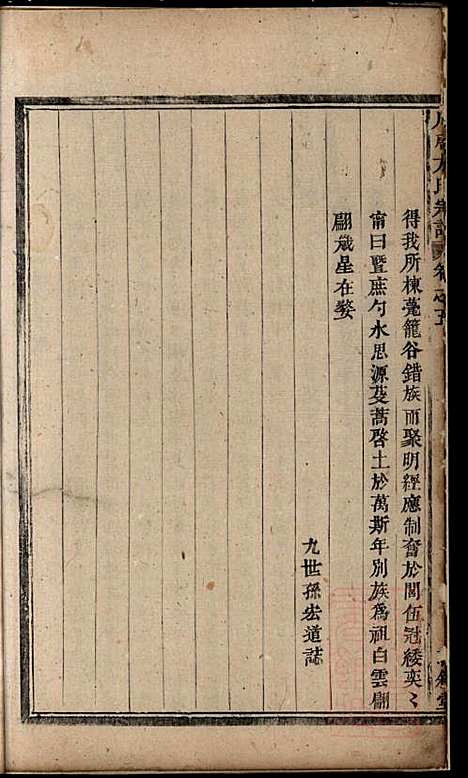 得我所棟薨籠谷錯族而聚明經應制奮於閭伍冠緌奕〻
甯曰暨庶勺水思源芟蒿啓土於萬斯年別族為祖白雲翩
翩歲星在婺
九世孫宏道誌